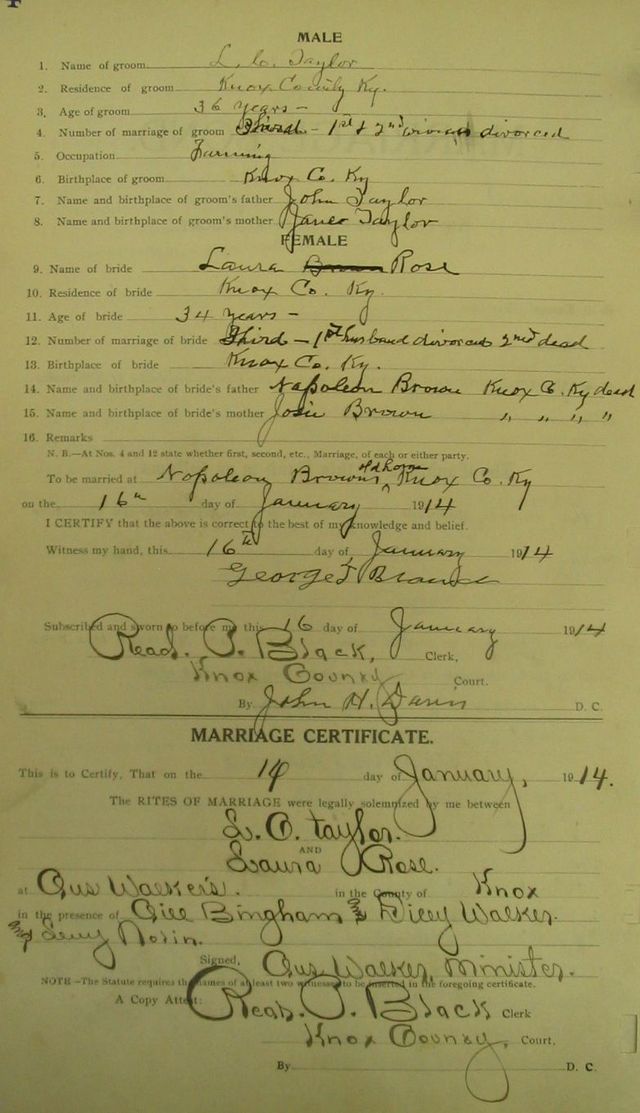 MALE
1. Name of groom L. C. Taylor
2. Residence of groom Knox County Ky.
3. Age of groom 36 years -
4. Number of marriage of groom Third - 1st & 2nd divorced
5. Occupation Farming
6. Birthplace of groom Knox Co. Ky
7. Name and birthplace of groom's father John Taylor
8. Name and birthplace of groom's mother Taylor
FEMALE
9. Name of bride Laura Brown Rose
10. Residence of bride Knox Co. Ky.
11. Age of bride 34 years -
12. Number of marriage of bride Third - 1st husband divorced 2nd dead
13. Birthplace of bride Knox Co. Ky.
14. Name and birthplace of bride's father Napoleon Brown Knox Co. Ky dead
15. Name and birthplace of bride's mother Josie Brown " " " "
16. Remarks
N. B.—At Nos. 4 and 12 state whether first, second, etc., Marriage, of each or either party.
To be married at Napoleon Browns old home Knox Co. Ky
on the 16th day of January 1914
I CERTIFY that the above is correct to the best of my knowledge and belief.
Witness my hand, this 16th day of January 1914
George
Subscribed and sworn to before me this 16 day of January 1914
Read. P. Black, Clerk,
Knox County Court.
By John H. Davis D. C.
MARRIAGE CERTIFICATE.
This is to Certify, That on the day of January, 1914.
The RITES OF MARRIAGE were legally solemnized by me between
L. C. taylor.
AND
Laura Rose.
at Gus Walker's. in the County of Knox
in the presence of Bingham & Walker.
Signed, Gus Walker, Minister.
NOTE—The Statute requires the names of at least two witnesses to be inserted in the foregoing certificate.
A Copy Attest: Read. P. Black Clerk
Knox County, Court.
By D. C.